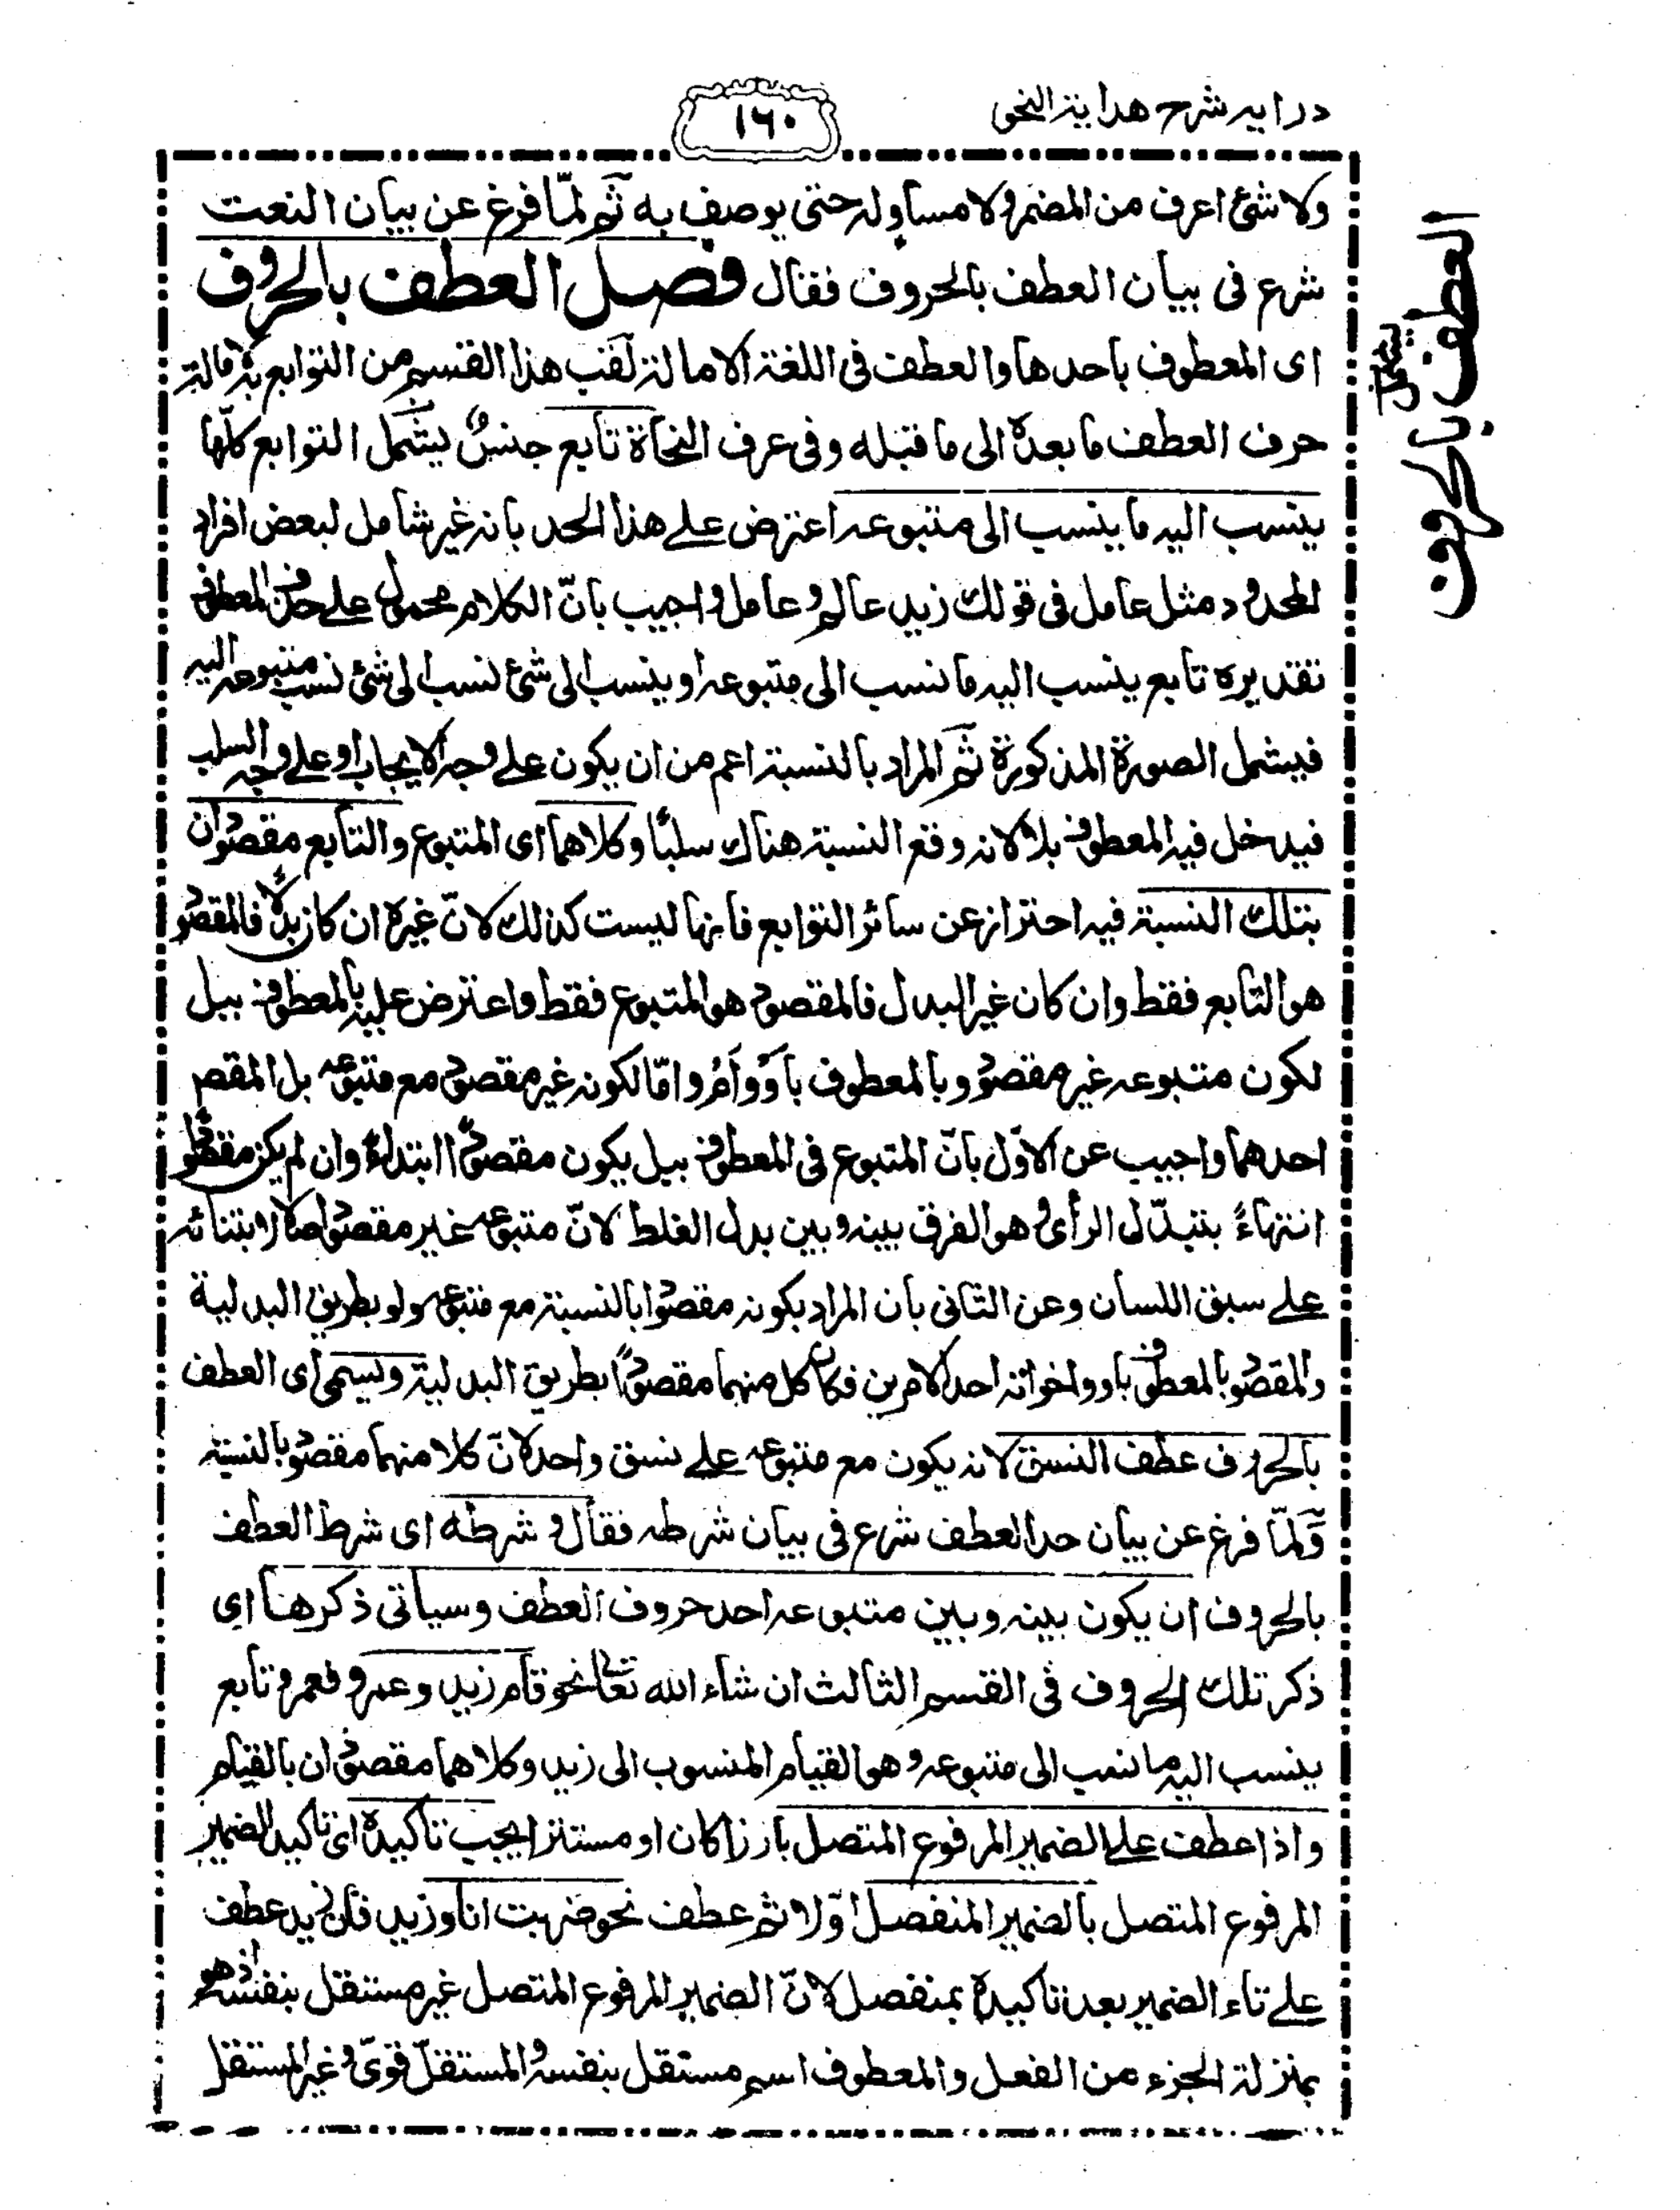 درايه شرح هداية النحو
١٦٠
ولا شئ اعرف من المضمر ولا مساو له حتى يوصف به ثم لمّا فرغ عن بيان النعت
شرع فى بيان العطف بالحروف فقال فصل العطف بالحروف
اى المعطوف باحدها والعطف فى اللغة الامالة لقب هذا القسم من التوابع به لامالة
حرف العطف ما بعده الى ما قبله وفى عرف النحاة تابع جنسٌ يشمل التوابع كلّها
ينسب اليه ما ينسب الى متبوعه اعترض على هذا الحد بانه غير شامل لبعض افراد
المحدود مثل عامل فى قولك زيد عالم وعامل واجيب بانّ الكلام محمول على حذف المعطوف
تقديره تابع ينسب اليه ما نسب الى متبوعه او ينسب الى شئ نسب الى شئ نسب متبوعه اليه
فيشمل الصورة المذكورة ثم المراد بالنسبة اعم من ان يكون على وجه الايجاب او على وجه السلب
فيدخل فيه المعطوف بلا لانه وقع النسبة هناك سلبًا وكلاهما اى المتبوع والتابع مقصودان
بتلك النسبة فيه احتراز عن سائر التوابع فانها ليست كذلك لانّ غيره ان كان بدلًا فالمقصود
هو التابع فقط وان كان غير البدل فالمقصود هو المتبوع فقط واعترض عليه بالمعطوف ببل
لكون متبوعه غير مقصود وبالمعطوف باَوْ واَمْ وامّا لكونه غير مقصود مع متبوعه بل المقصد
احدهما واجيب عن الاوّل بانّ المتبوع فى المعطوف ببل يكون مقصودًا ابتداءً وان لم يكن مقصودًا
انتهاءً بتبدّل الرأى وهو الفرق بينه وبين بدل الغلط لانّ متبوعه غير مقصود اصلا لابتنائه
على سبق اللسان وعن الثانى بان المراد بكونه مقصودا بالنسبة مع متبوعه ولو بطريق البدلية
والمقصود بالمعطوف باو واخواته احد الامرين فكان كل منهما مقصودًا بطريق البدلية ويسمى اى العطف
بالحروف عطف النسق لانه يكون مع متبوعه على نسق واحد لانّ كلا منهما مقصود بالنسبة
ولمّا فرغ عن بيان حد العطف شرع فى بيان شرطه فقال وشرطه اى شرط العطف
بالحروف ان يكون بينه وبين متبوعه احد حروف العطف وسياتى ذكرها اى
ذكر تلك الحروف فى القسم الثالث ان شاء الله تعالى نحو قام زيد وعمرو فعمرو تابع
ينسب اليه ما نسب الى متبوعه وهو القيام المنسوب الى زيد وكلاهما مقصودان بالقيام
واذا عطف على الضمير المرفوع المتصل بارزا كان او مستترا يجب تاكيده اى تاكيد الضمير
المرفوع المتصل بالضمير المنفصل اوّلا ثم عطف نحو ضربت انا وزيد فان زيد عطف
على تاء الضمير بعد تاكيده بمنفصل لانّ الضمير المرفوع المتصل غير مستقل بنفسه اذ هو
بمنزلة الجزء من الفعل والمعطوف اسم مستقل بنفسه والمستقلّ قوىّ وغير المستقل
العطف بالحروف